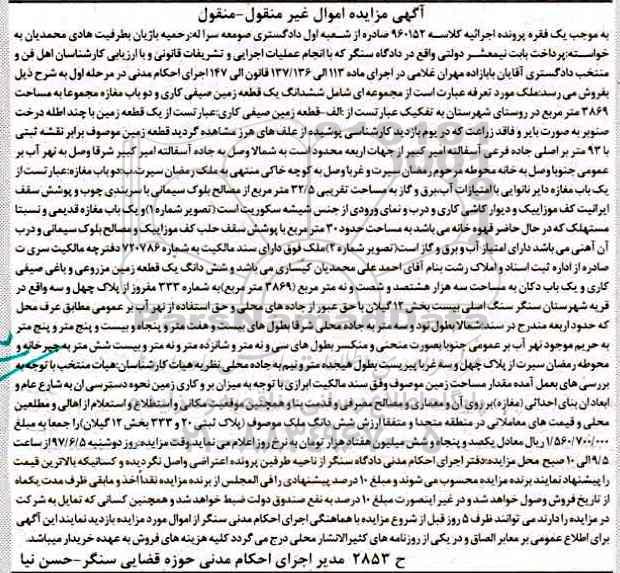 آگهی مزایده اموال غیر منقول-منقول
به موجب یک فقره پرونده اجرائیه کلاسه ۹۶۰۱۵۲ صادره از شعبه اول دادگستری صومعه سرا له:رحمیه باژیان بطرفیت هادی محمدیان به
خواسته:پرداخت بابت نیمعشر دولتی واقع در دادگاه سنگر که با انجام عملیات اجرایی و تشریفات قانونی و با ارزیابی کارشناسان اهل فن و
منتخب دادگستری آقایان بابازاده مهران غلامی در اجرای ماده ۱۱۳ الی ۱۳۷/۱۳۶ قانون الی ۱۴۷ اجرای احکام مدنی در مرحله اول به شرح ذیل
بفروش می رسد:ملک مورد تعرفه عبارت است از مجموعه ای شامل ششدانگ یک قطعه زمین صیفی کاری و دو باب مغازه مجموعا به مساحت
۳۸۶۹ متر مربع در روستای شهرستان به تفکیک عبارتست از :الف-قطعه زمین صیفی کاری:عبارتست از یک قطعه زمین با چند اصله درخت
صنوبر به صورت بایر و فاقد زراعت که در یوم بازدید کارشناسی پوشیده از علف های هرز مشاهده گردید قطعه زمین موصوف برابر نقشه ثبتی
با ۹۳ متر بر اصلی جاده فرعی آسفالته امیر کبیر از جهات اربعه محدود است به شمالا وصل به جاده آسفالته امیر کبیر شرقا وصل به نهر آب بر
عمومی جنوبا وصل به خانه محوطه مرحوم رمضان سیرت و غربا وصل به کوچه خاکی منتهی به ملک رمضان سیرت ب:دو باب مغازه:عبارتست از
یک باب مغازه دایر نانوایی با امتیازات آب،برق و گاز به مساحت تقریبی ۳۲/۵ متر مربع از مصالح بلوک سیمانی با سربندی چوب و پوشش سقف
ایرانیت کف موزاییک و دیوار کاشی کاری و درب و نمای ورودی از جنس شیشه سکوریت است (تصویر شماره۱)و یک باب مغازه قدیمی و نسبتا
مستهلک که در حال حاضر قهوه خانه می باشد به مساحت حدود ۳۰ متر مربع با پوشش سقف حلب کف موزاییک و مصالح بلوک سیمانی و درب
آن آهنی می باشد دارای امتیاز آب و برق و گاز است(تصویر شماره ۲)ملک فوق دارای سند مالکیت به شماره ۷۲۰۷۸۶ دفترچه مالکیت سری ت
صادره از اداره ثبت اسناد و املاک رشت بنام آقای احمد علی محمدیان کیساری می باشد و شش دانگ یک قطعه زمین مزروعی و باغی صیفی
کاری و یک باب دکان به مساحت سه هزار هشتصد و شصت و نه متر مربع (۳۸۶۹ متر مربع)به شماره ۳۳۳ مفروز از پلاک چهل و سه واقع در
قریه شهرستان سنگر سنگ اصلی بیست بخش ۱۲ گیلان با حق عبور از جاده های محلی و حق استفاده از نهر آب بر عمومی مطابق عرف محل
که حدود اربعه مندرج در سند:شمالا بطول نود و سه متر به جاده محلی شرقا بطول های بیست و هفت متر و پنجاه و بیست و پنج متر و پنج متر
به حریم موجود نهر آب بر عمومی جنوبا بصورت منحنی و منکسر بطول های سی و نه متر و شانزده متر و نه متر و بیست شش متر به خانه و
محوطه رمضان سیرت از پلاک چهل و سه غربا بیست بطول هیجده متر و نیم به جاده محلی نظریه هیات کارشناسان:هیات منتخب با توجه به
بررسی های بعمل آمده مقدار مساحت زمین موصوف وفق سند مالکیت ابرازی با توجه به میزان بر و کاری زمین نحوه دسترسی ان به شارع عام و
ابعاد ان بنای احداثی (مغازه)بر روی آن و معماری و مصالح مصرفی و قدمت بنا و همچنین موقعیت مکانی و استطلاع و استعلام از اهالی و مطلعین
محلی و قیمت های معاملاتی در منطقه متحدا و متفقا ارزش شش دانگ ملک موصوف (پلاک ثبتی ۲۰ و ۳۳۳ بخش ۱۲ گیلان)را جمعا به مبلغ
۱/۵۶۰/۷۰۰/۰۰۰ ریال معادل یکصد و پنجاه و شش میلیون هفتاد هزار تومان به نرخ روز اعلام می نماید.وقت مزایده:روز دوشنبه ۹۷/۶/۵ از ساعت
۹/۵الی ۱۰ صبح محل مزایده:دفتر اجرای احکام مدنی دادگاه سنگر از ناحیه طرفین پرونده اعتراضی واصل نگردیده و کسانیکه بالاترین قیمت
را پیشنهاد نمایند برنده مزایده محسوب می شوند و مبلغ ۱۰ درصد پیشنهادی را فی المجلس از برنده مزایده نقدا اخذ و مابقی ظرف مدت یکماه
از تاریخ فروش وصول خواهد شد و در غیر اینصورت مبلغ ۱۰ درصد به نفع صندوق دولت ضبط خواهد شد و همچنین کسانی که تمایل به شرکت
در مزایده را دارند می توانند ظرف ۵ روز قبل از شروع مزایده با هماهنگی اجرای احکام مدنی سنگر از اموال مورد مزایده بازدید نمایند این آگهی
برای اطلاع عمومی بر معابر الصاق و در یکی از روزنامه های کثیرالانتشار محلی درج می گردد کلیه هزینه های فروش به عهده خریدار میباشد.
ح ۲۸۵۳ مدیر اجرای احکام مدنی حوزه قضایی سنگر-حسن نیا